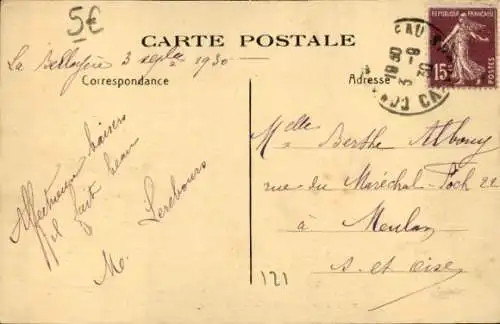 5€
CARTE POSTALE
3 sept 1930
Correspondance
Adresse
REPUBLIQUE FRANCAISE
15c
POSTES
1930
Affectueux baisers
il fait beau
M. Lerebours
Melle Berthe Albouy
rue du Maréchal-Foch 22
à Meulan
S. et Oise
121